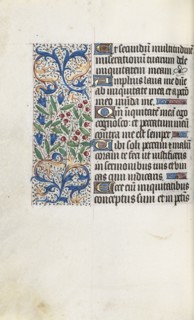 Et secundum multitudinem
miserationum tuarum dele
iniquitatem meam
Amplius lava me ab
ab iniquitate mea et a peccato
meo munda me
Quoniam iniquitatem meam ego
cognosco et peccatum meum
contra me est semper
Tibi soli peccavi et malum
coram te feci ut iustificeris
in sermonibus tuis et vin
cas cum iudicaris
Ecce enim in iniquitatibus
conceptus sum et in peccatis